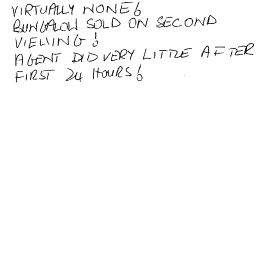 VIRTUALLY NONE!
BUNGALOW SOLD ON SECOND
VIEWING!
AGENT DID VERY LITTLE AFTER
FIRST 24 HOURS!